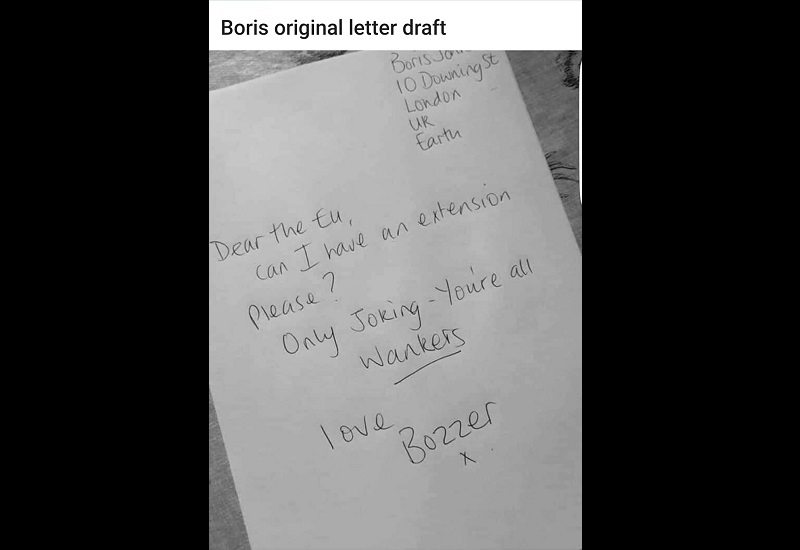 Boris original letter draft
Boris
10 Downing St
London
UK
Earth
Dear the Eu,
can I have an extension
please?
Only Joking - You're all
Wankers
love
Bozzer
x